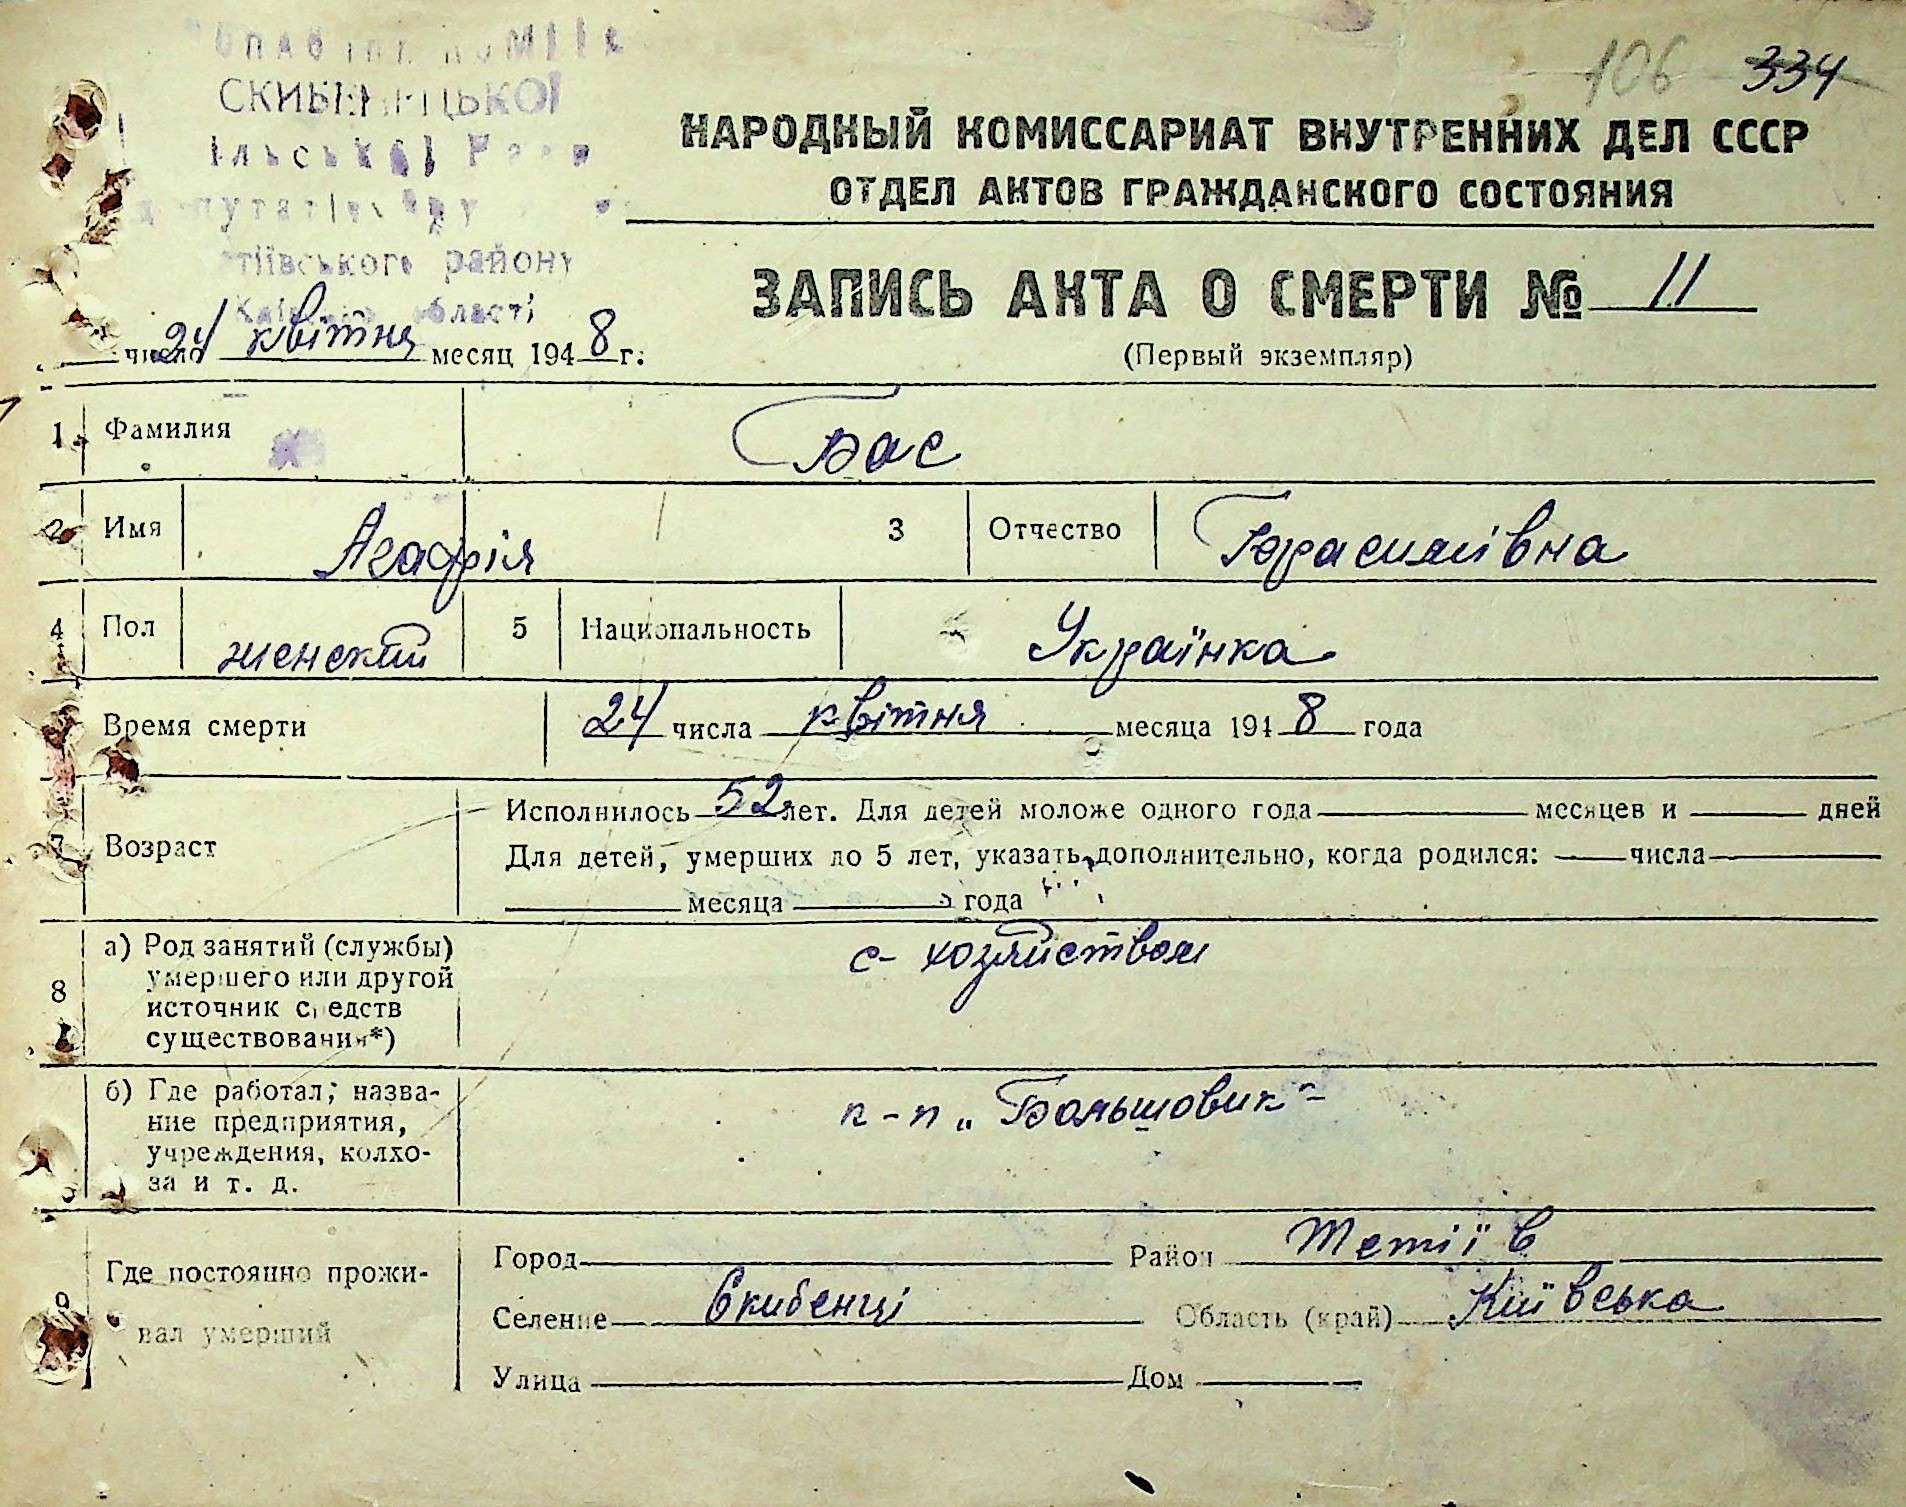 СКИБИНЕЦЬКОЇ
району
області
106 334
НАРОДНЫЙ КОМИССАРИАТ ВНУТРЕННИХ ДЕЛ СССР
ОТДЕЛ АКТОВ ГРАЖДАНСКОГО СОСТОЯНИЯ
ЗАПИСЬ АКТА О СМЕРТИ № 11
(Первый экземпляр)
24 число квітня месяц 1948 г.
1 Фамилия Бас
2 Имя Агафія 3 Отчество Герасимівна
4 Пол женский 5 Национальность Українка
Время смерти 24 числа квітня месяца 1948 года
7 Возраст Исполнилось 52 лет. Для детей моложе одного года месяцев и дней
Для детей, умерших до 5 лет, указать дополнительно, когда родился: числа
месяца года
8 а) Род занятий (службы) умершего или другой источник средств существования*) с-хозяйством
б) Где работал; название предприятия, учреждения, колхоза и т. д. к-п „Большовик"
9 Где постоянно проживал умерший
Город Район Тетіїв
Селение Скибенці Область (край) Київська
Улица Дом